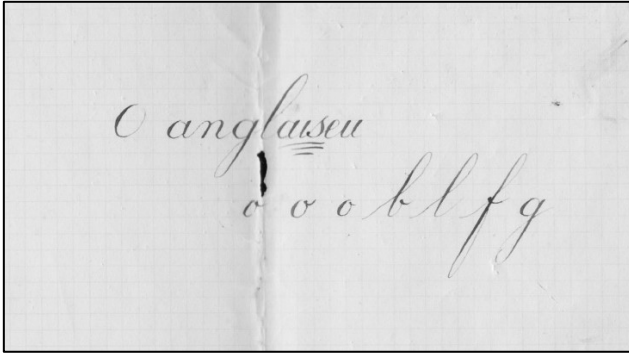 O anglaiseu
o o o b l f g